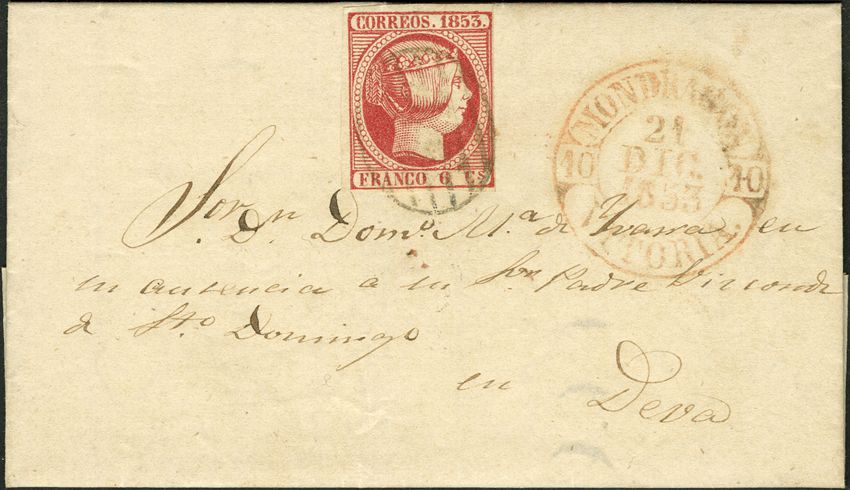 CORREOS. 1853.
FRANCO 6 Cs
MONDRAGON
21
DIC.
1853
10 10
VITORIA.
Sor. Dn
D. Domo. Ma. de Ivarra en
su ausencia a su Sor. Padre Vizconde
de Sto. Domingo
en Deva